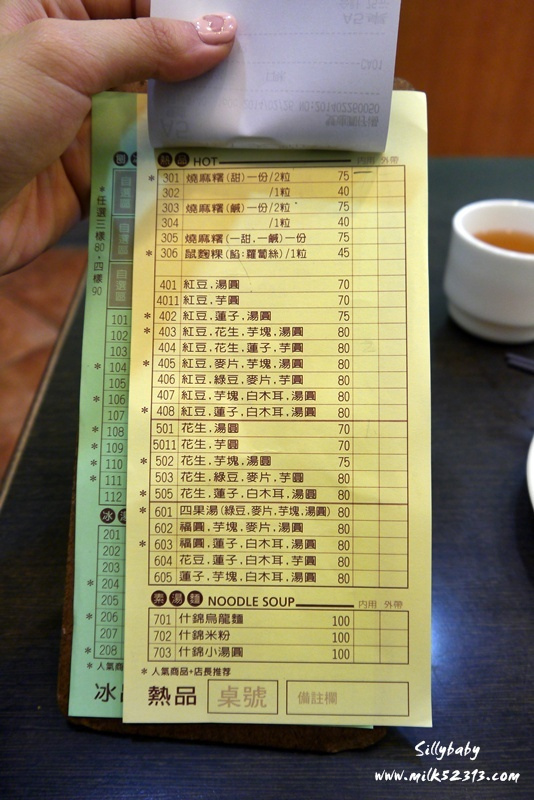 熱品 HOT 內用 外帶
* 301 燒麻糬(甜)一份/2粒 75
302 /1粒 40
303 燒麻糬(鹹)一份/2粒 75
304 /1粒 40
305 燒麻糬(一甜.一鹹)一份 75
* 306 鼠麴粿(餡:蘿蔔絲)/1粒 45
401 紅豆.湯圓 70
4011 紅豆.芋圓 70
* 402 紅豆.蓮子.湯圓 75
* 403 紅豆.花生.芋塊.湯圓 80
404 紅豆.花生.蓮子.芋圓 80
* 405 紅豆.麥片.芋塊.湯圓 80
406 紅豆.綠豆.麥片.芋圓 80
407 紅豆.芋塊.白木耳.湯圓 80
* 408 紅豆.蓮子.白木耳.湯圓 80
501 花生.湯圓 70
5011 花生.芋圓 70
* 502 花生.芋塊.湯圓 75
503 花生.綠豆.麥片.芋圓 80
* 505 花生.蓮子.白木耳.湯圓 80
* 601 四果湯(綠豆.麥片.芋塊.湯圓) 80
602 福圓.芋塊.麥片.湯圓 80
* 603 福圓.蓮子.白木耳.湯圓 80
604 花豆.蓮子.白木耳.芋圓 80
605 蓮子.芋塊.白木耳.湯圓 80
素湯麵 NOODLE SOUP 內用 外帶
701 什錦烏龍麵 100
702 什錦米粉 100
703 什錦小湯圓 100
* 人氣商品+店長推荐
熱品 桌號 備註欄
* 任選三樣80.四樣90
自選區
自選區
自選區
101
102
103
* 104
105
* 106
107
* 108
* 109
* 110
* 111
112
冰
201
202
203
* 204
205
* 206
207
* 208
* 人氣商
冰品
Sillybaby
www.milk52313.com